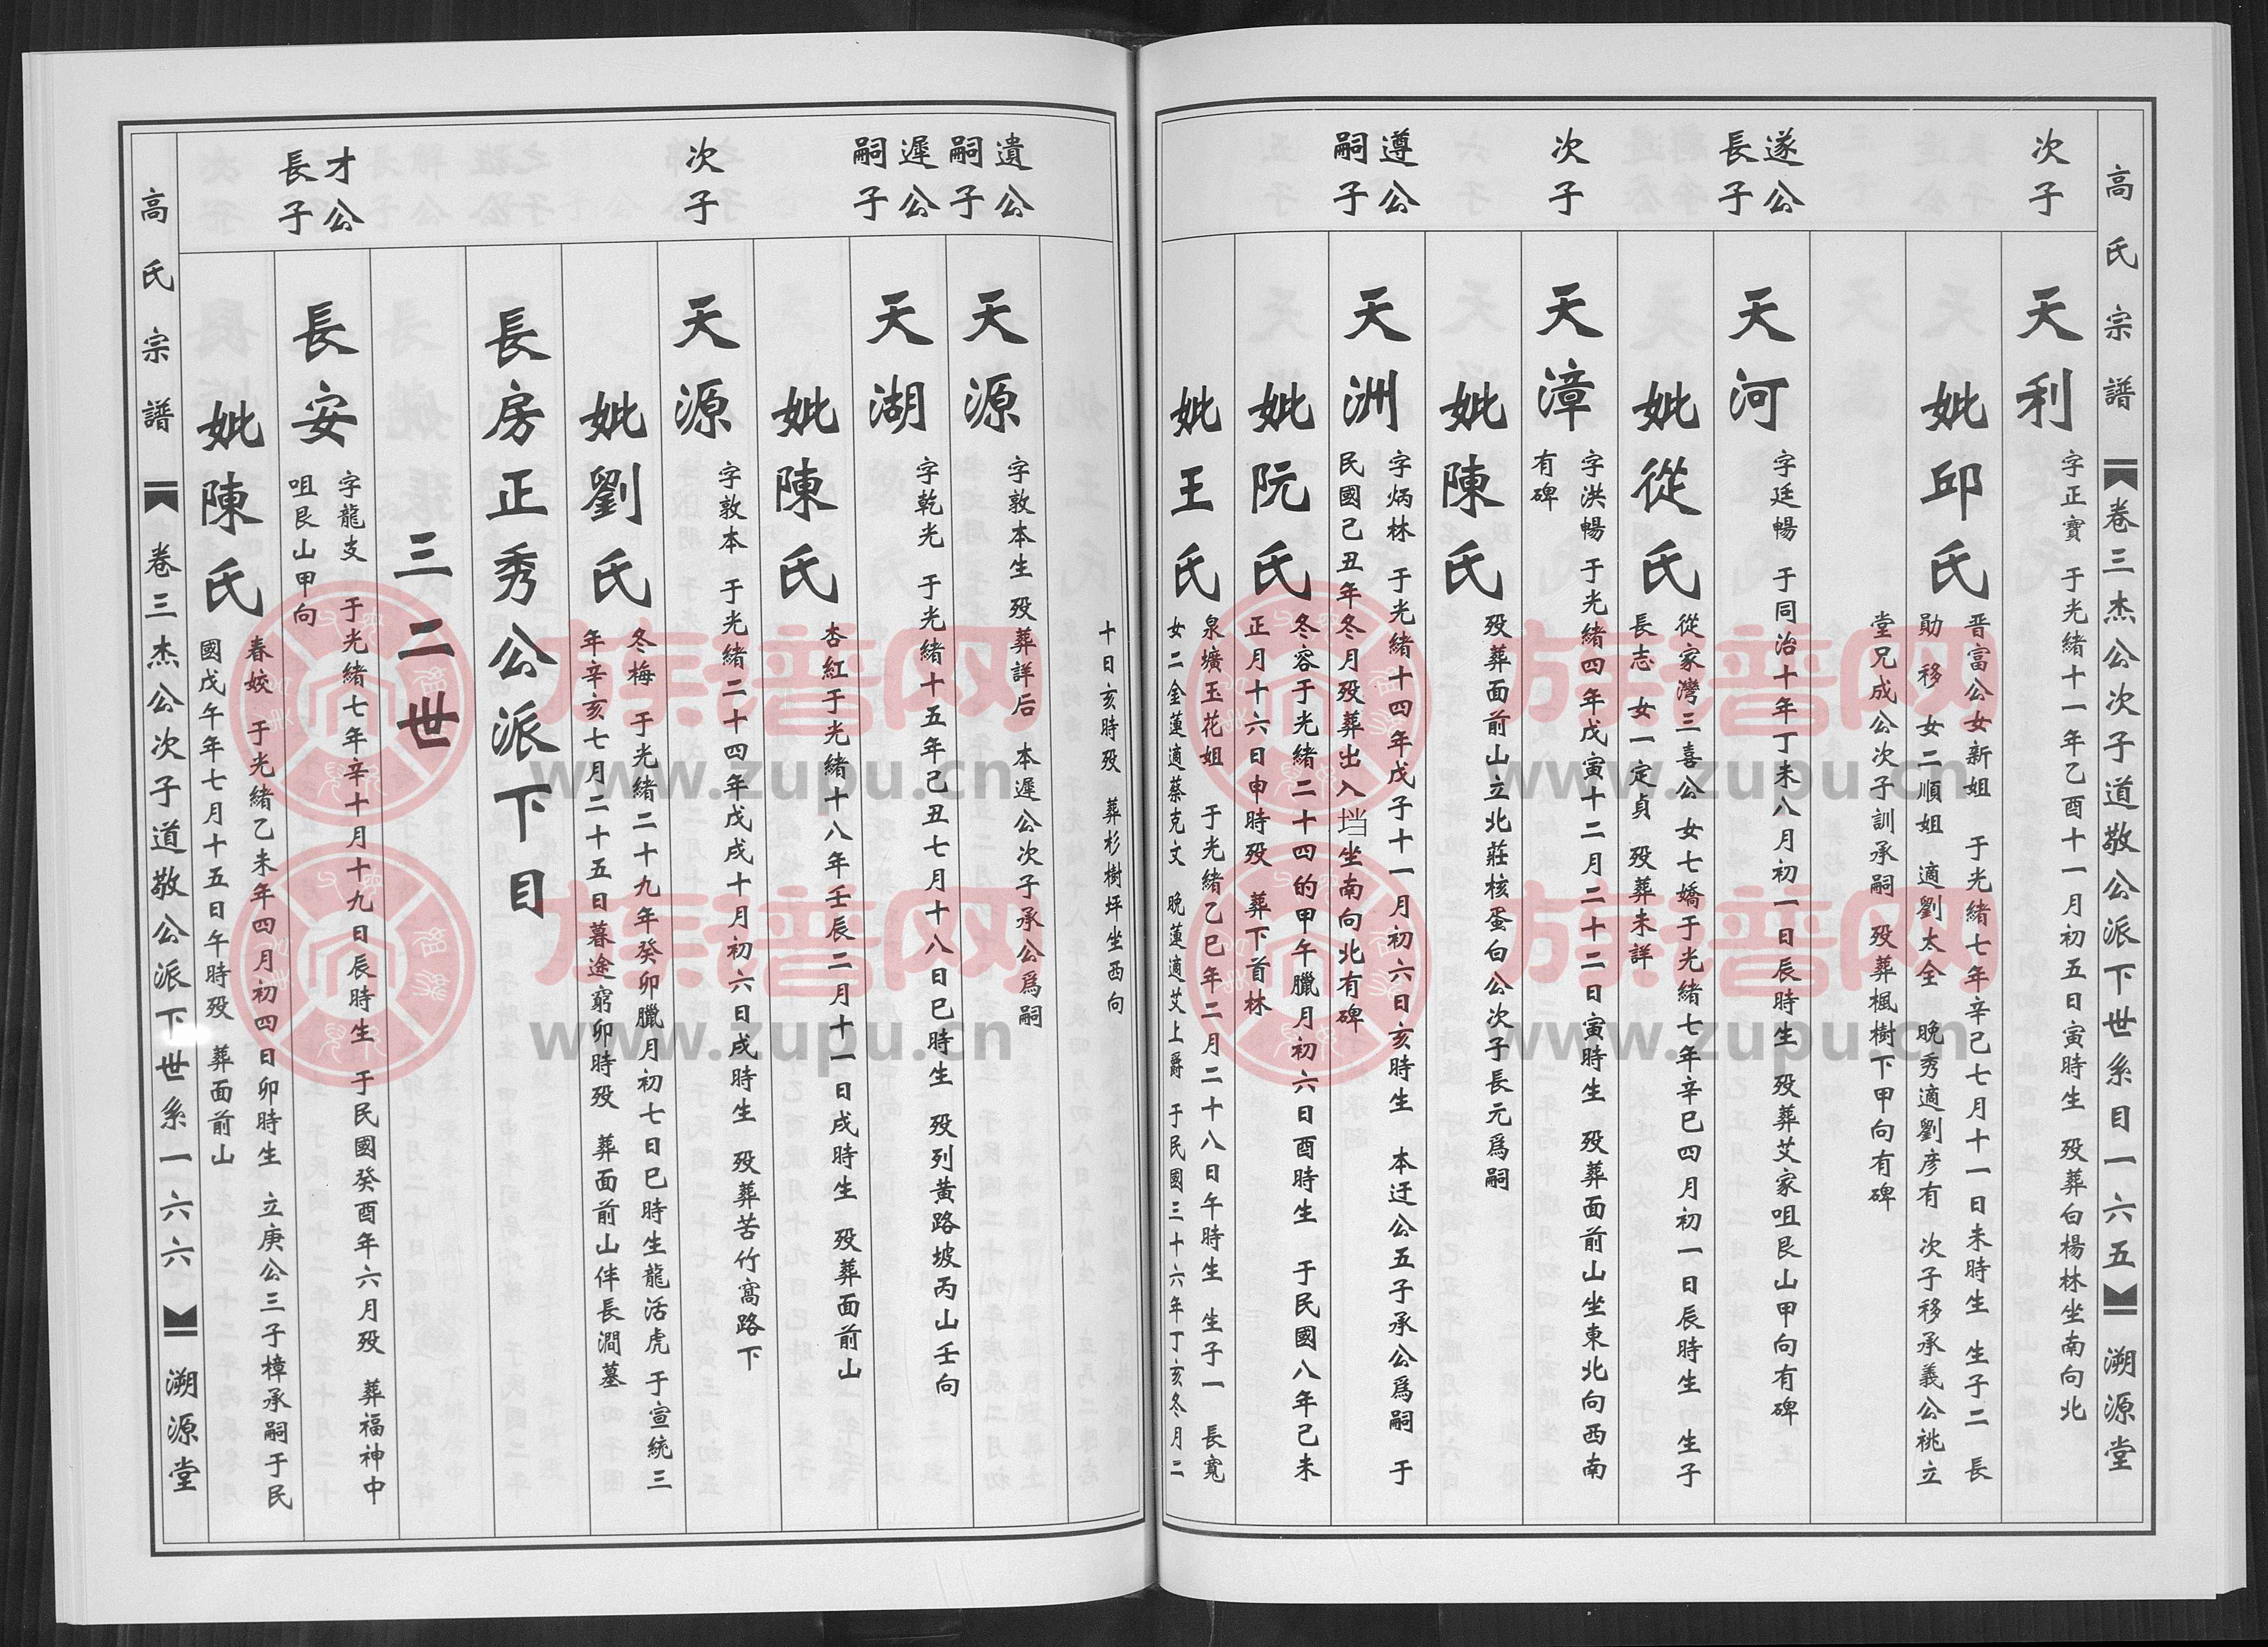 高氏宗譜 卷三杰公次子道敬公派下世系目一六五 溯源堂
次子
天利 字正寶 于光緒十一年乙酉十一月初五日寅時生 殁葬白楊林坐南向北
妣邱氏 晋富公女新姐 于光緒七年辛己七月十一日未時生 生子二 長
勛 移 女二順姐 適劉太全 晚秀適劉彥有 次子移承義公祧立
堂兄成公次子訓承嗣 殁葬楓樹下甲向有碑
遂公
長子
天河 字廷暢 于同治十年丁未八月初一日辰時生 殁葬艾家咀艮山甲向有碑
妣從氏 從家灣三喜公女七嬌于光緒七年辛巳四月初一日辰時生 生子
長志 女一定貞 殁葬未詳
次子
天漳 字洪暢 于光緒四年戊寅十二月二十二日寅時生 殁葬面前山坐東北向西南
有碑
妣陳氏 殁葬面前山立北莊核蛋白公次子長元爲嗣
遵公
嗣子
天洲 字炳林 于光緒十四年戊子十一月初六日亥時生 本迂公五子承公爲嗣 于
民國己丑年冬月殁葬出入垱坐南向北有碑
妣阮氏 冬容于光緒二十四的甲午臘月初六日酉時生 于民國八年己未
正月十六日申時殁 葬下首林
妣王氏 泉壙玉花姐 于光緒乙巳年二月二十八日午時生 生子一 長寬
女二金蓮適蔡克文 晚蓮適艾上爵 于民國三十六年丁亥冬月二
十日亥時殁 葬杉樹坪坐西向
遺公
嗣子
天源 字敦本生殁葬詳后 本遲公次子承公爲嗣
遲公
嗣子
天湖 字乾光 于光緒十五年己丑七月十八日巳時生 殁列黄路坡丙山壬向
妣陳氏 杏紅于光緒十八年壬辰二月十一日戌時生 殁葬面前山
次子
天源 字敦本 于光緒二十四年戊戌十月初六日戌時生 殁葬苦竹窩路下
妣劉氏 冬梅 于光緒二十九年癸卯臘月初七日巳時生龍活虎 于宣統三
年辛亥七月二十五日暮途窮卯時殁 葬面前山伴長澗墓
長房正秀公派下目
三二世
才公
長子
長安 字龍支 于光緒七年辛十月十九日辰時生 于民國癸酉年六月殁 葬福神中
咀艮山甲向
妣陳氏 春姣 于光緒乙未年四月初四日卯時生 立庚公三子樟承嗣于民
國戊午年七月十五日午時殁 葬面前山
高氏宗譜 卷三杰公次子道敬公派下世系一六六 溯源堂
族譜网
www.zupu.cn
族譜网
www.zupu.cn
族譜网
www.zupu.cn
族譜网
www.zupu.cn